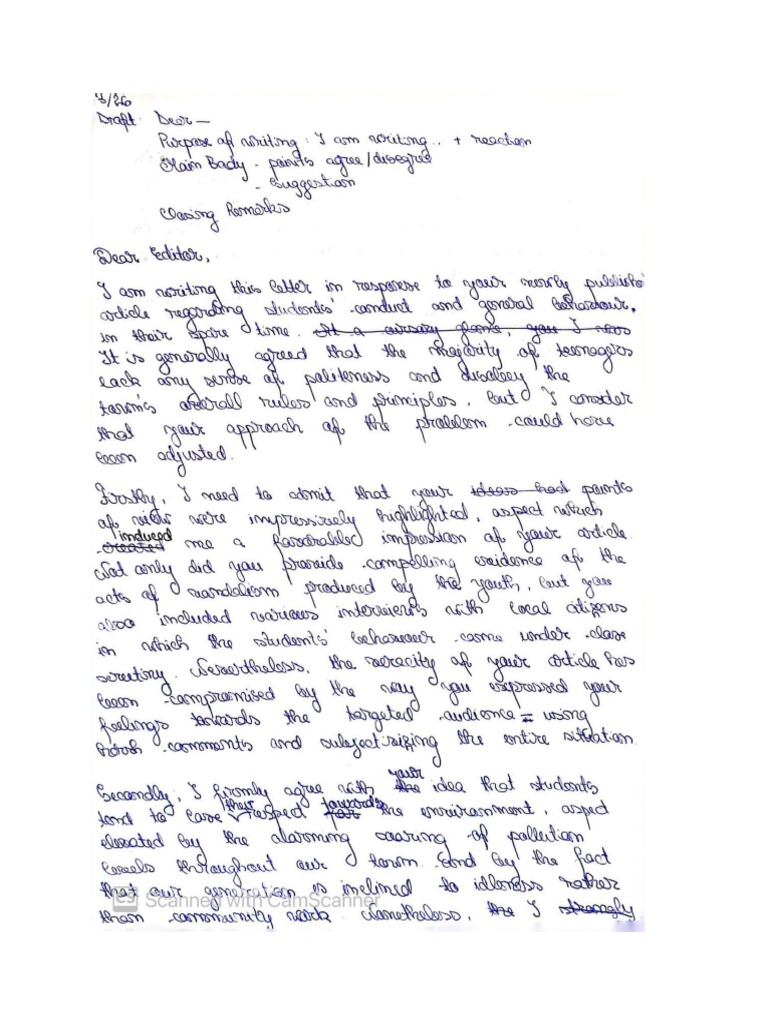 3/26
Draft: Dear —
Purpose of writing: I am writing.. + reaction
Main Body - points agree/disagree
- Suggestion
Closing Remarks
Dear Editor,
I am writing this letter in response to your newly publishe
article regarding students' conduct and general behaviour,
in their spare time. At a cursory glance, you I was
It is generally agreed that the majority of teenagers
lack any sense of politeness and disobey the
town's overall rules and principles, but I consider
that your approach of the problem could have
been adjusted.
Firstly, I need to admit that your ideas had points
of view were impressively highlighted, aspect which
created induced me a favorable impression of your article.
Not only did you provide compelling evidence of the
acts of vandalism produced by the youth, but you
also included various interviews with local citizens
in which the students' behaviour come under close
scrutiny. Nevertheless, the veracity of your article has
been compromised by the way you expressed your
feelings towards the targeted audience - using
harsh comments and subjectivizing the entire situation.
Secondly, I firmly agree with the your idea that students
tend to lose their respect for towards the environment, aspect
elevated by the alarming soaring of pollution
levels throughout our town. And by the fact
that our generation is inclined to idleness rather
than community work. Nonetheless, the I strongly
Scanned with CamScanner